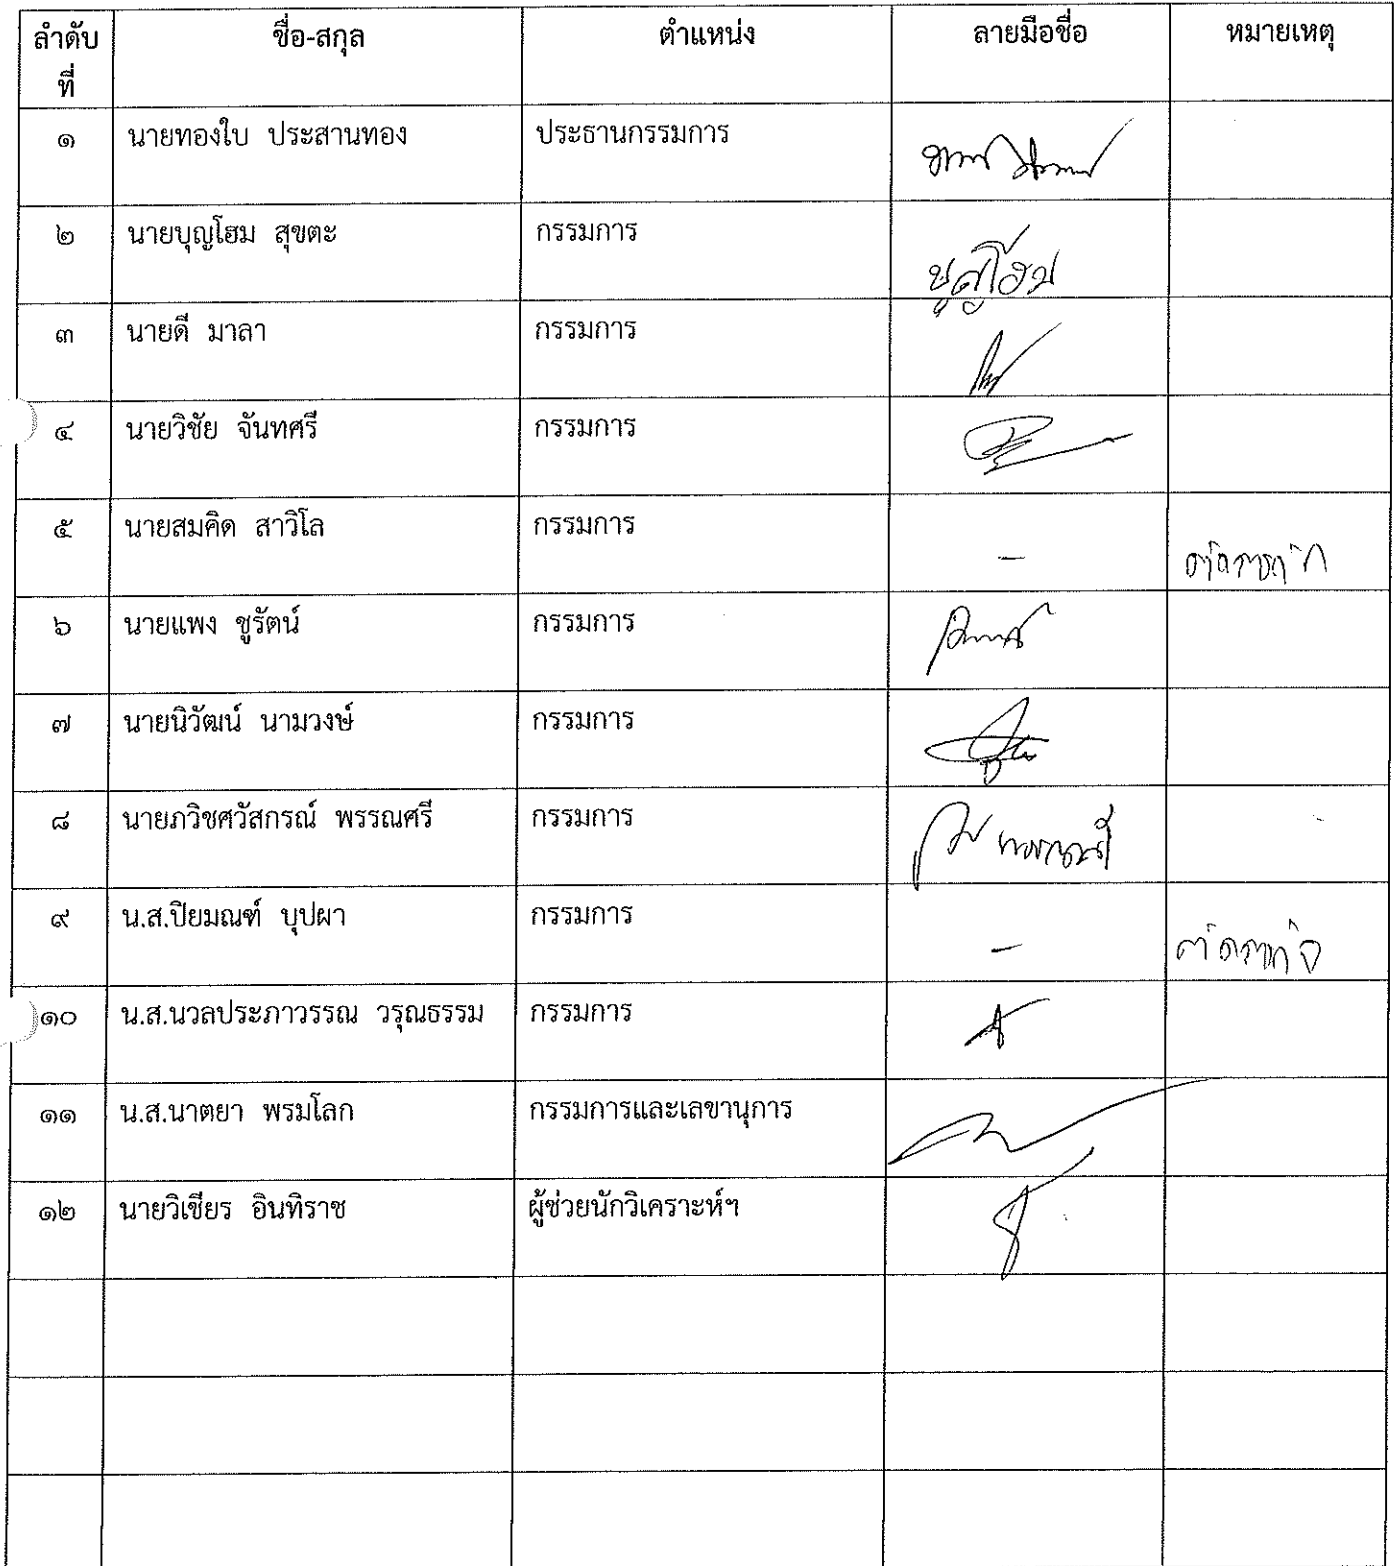 ลำดับที่ ชื่อ-สกุล ตำแหน่ง ลายมือชื่อ หมายเหตุ
๑ นายทองใบ ประสานทอง ประธานกรรมการ
๒ นายบุญโฮม สุขตะ กรรมการ บุญโฮม
๓ นายดี มาลา กรรมการ
๔ นายวิชัย จันทศรี กรรมการ
๕ นายสมคิด สาวิโล กรรมการ - ติดภารกิจ
๖ นายแพง ชูรัตน์ กรรมการ
๗ นายนิวัฒน์ นามวงษ์ กรรมการ
๘ นายภวิชศวัสกรณ์ พรรณศรี กรรมการ
๙ น.ส.ปิยมณฑ์ บุปผา กรรมการ - ติดภารกิจ
๑๐ น.ส.นวลประภาวรรณ วรุณธรรม กรรมการ
๑๑ น.ส.นาตยา พรมโลก กรรมการและเลขานุการ
๑๒ นายวิเชียร อินทิราช ผู้ช่วยนักวิเคราะห์ฯ